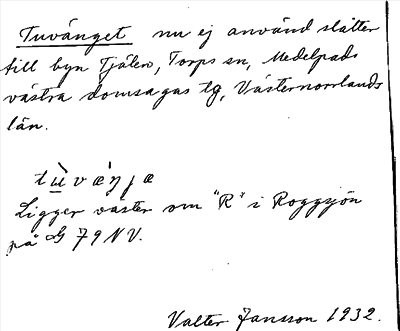 Tuvänget nu ej använd slåtter
till byn Tjälen, Torps sn, Medelpads
västra domsagas tg, Västernorrlands
län.
tùvæŋjæ
Ligger väster om "R" i Roggsjön
på G 79 NV.
Valter Jansson 1932.